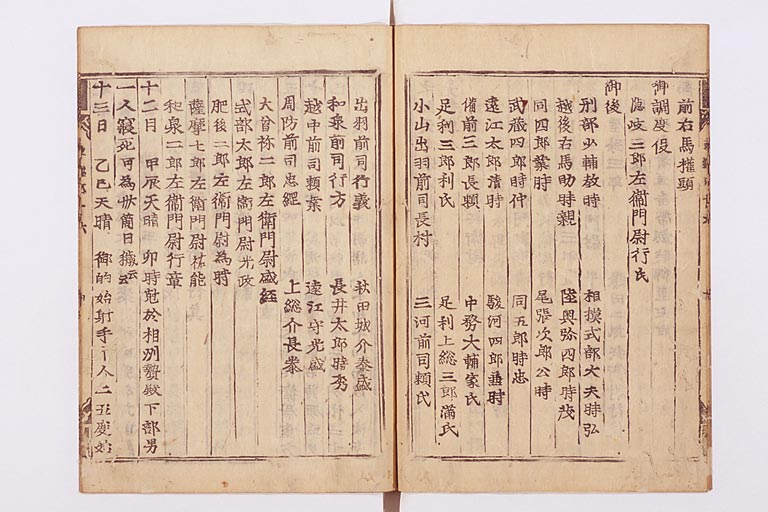 前右馬権頭
御調度役
隠岐三郎左衛門尉行氏
御後
刑部少輔教時 相摸式部大夫時弘
越後右馬助時親 陸奥弥四郎時茂
同四郎業時 尾張次郎公時
武蔵四郎時仲 同五郎時忠
遠江太郎清時 駿河四郎兼時
備前三郎長頼 中務大輔家氏
足利三郎利氏 足利上総三郎満氏
小山出羽前司長村 三河前司頼氏
出羽前司行義 秋田城介泰盛
和泉前司行方 長井太郎時秀
越中前司頼業 遠江守光盛
周防前司忠經 上総介長泰
大曽祢二郎左衛門尉盛經
式部太郎左衛門尉光政
肥後二郎左衛門尉為時
薩摩七郎左衛門尉祐能
和泉三郎左衛門尉行章
十二日 甲辰天晴 卯時尅於相列贄殿下部男
一人寝死可為廿箇日穢云云
十三日 乙巳天晴 御的始射手十人二五度始